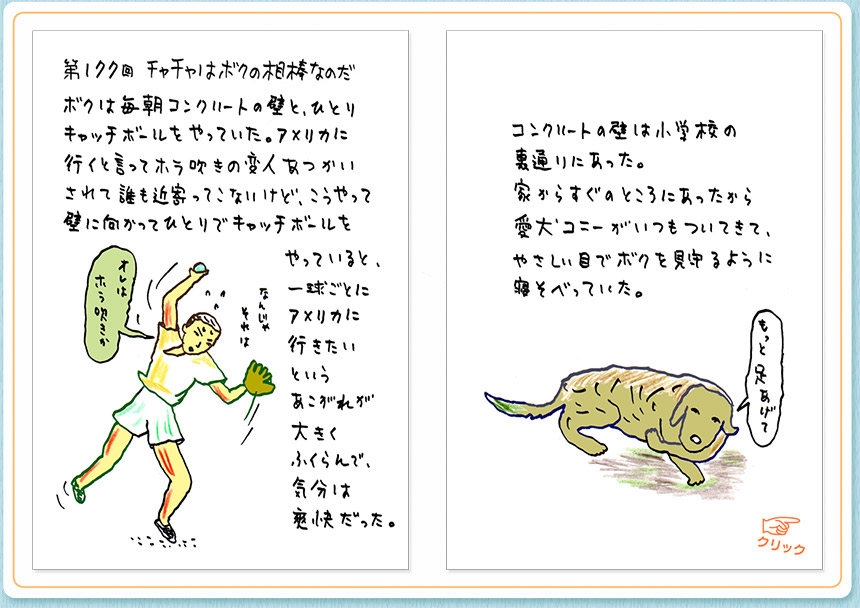 第177回 チャチャはボクの相棒なのだ
ボクは毎朝コンクリートの壁と、ひとり
キャッチボールをやっていた。アメリカに
行くと言ってホラ吹きの変人あつかい
されて誰も近寄ってこないけど、こうやって
壁に向かってひとりでキャッチボールを
やっていると、
一球ごとに
アメリカに
行きたい
という
あこがれが
大きく
ふくらんで、
気分は
爽快だった。
オレは
ホラ吹きか
なんじゃ
それは
コンクリートの壁は小学校の
裏通りにあった。
家からすぐのところにあったから
愛犬コニーがいつもついてきて、
やさしい目でボクを見守るように
寝そべっていた。
もっと足あげて
クリック